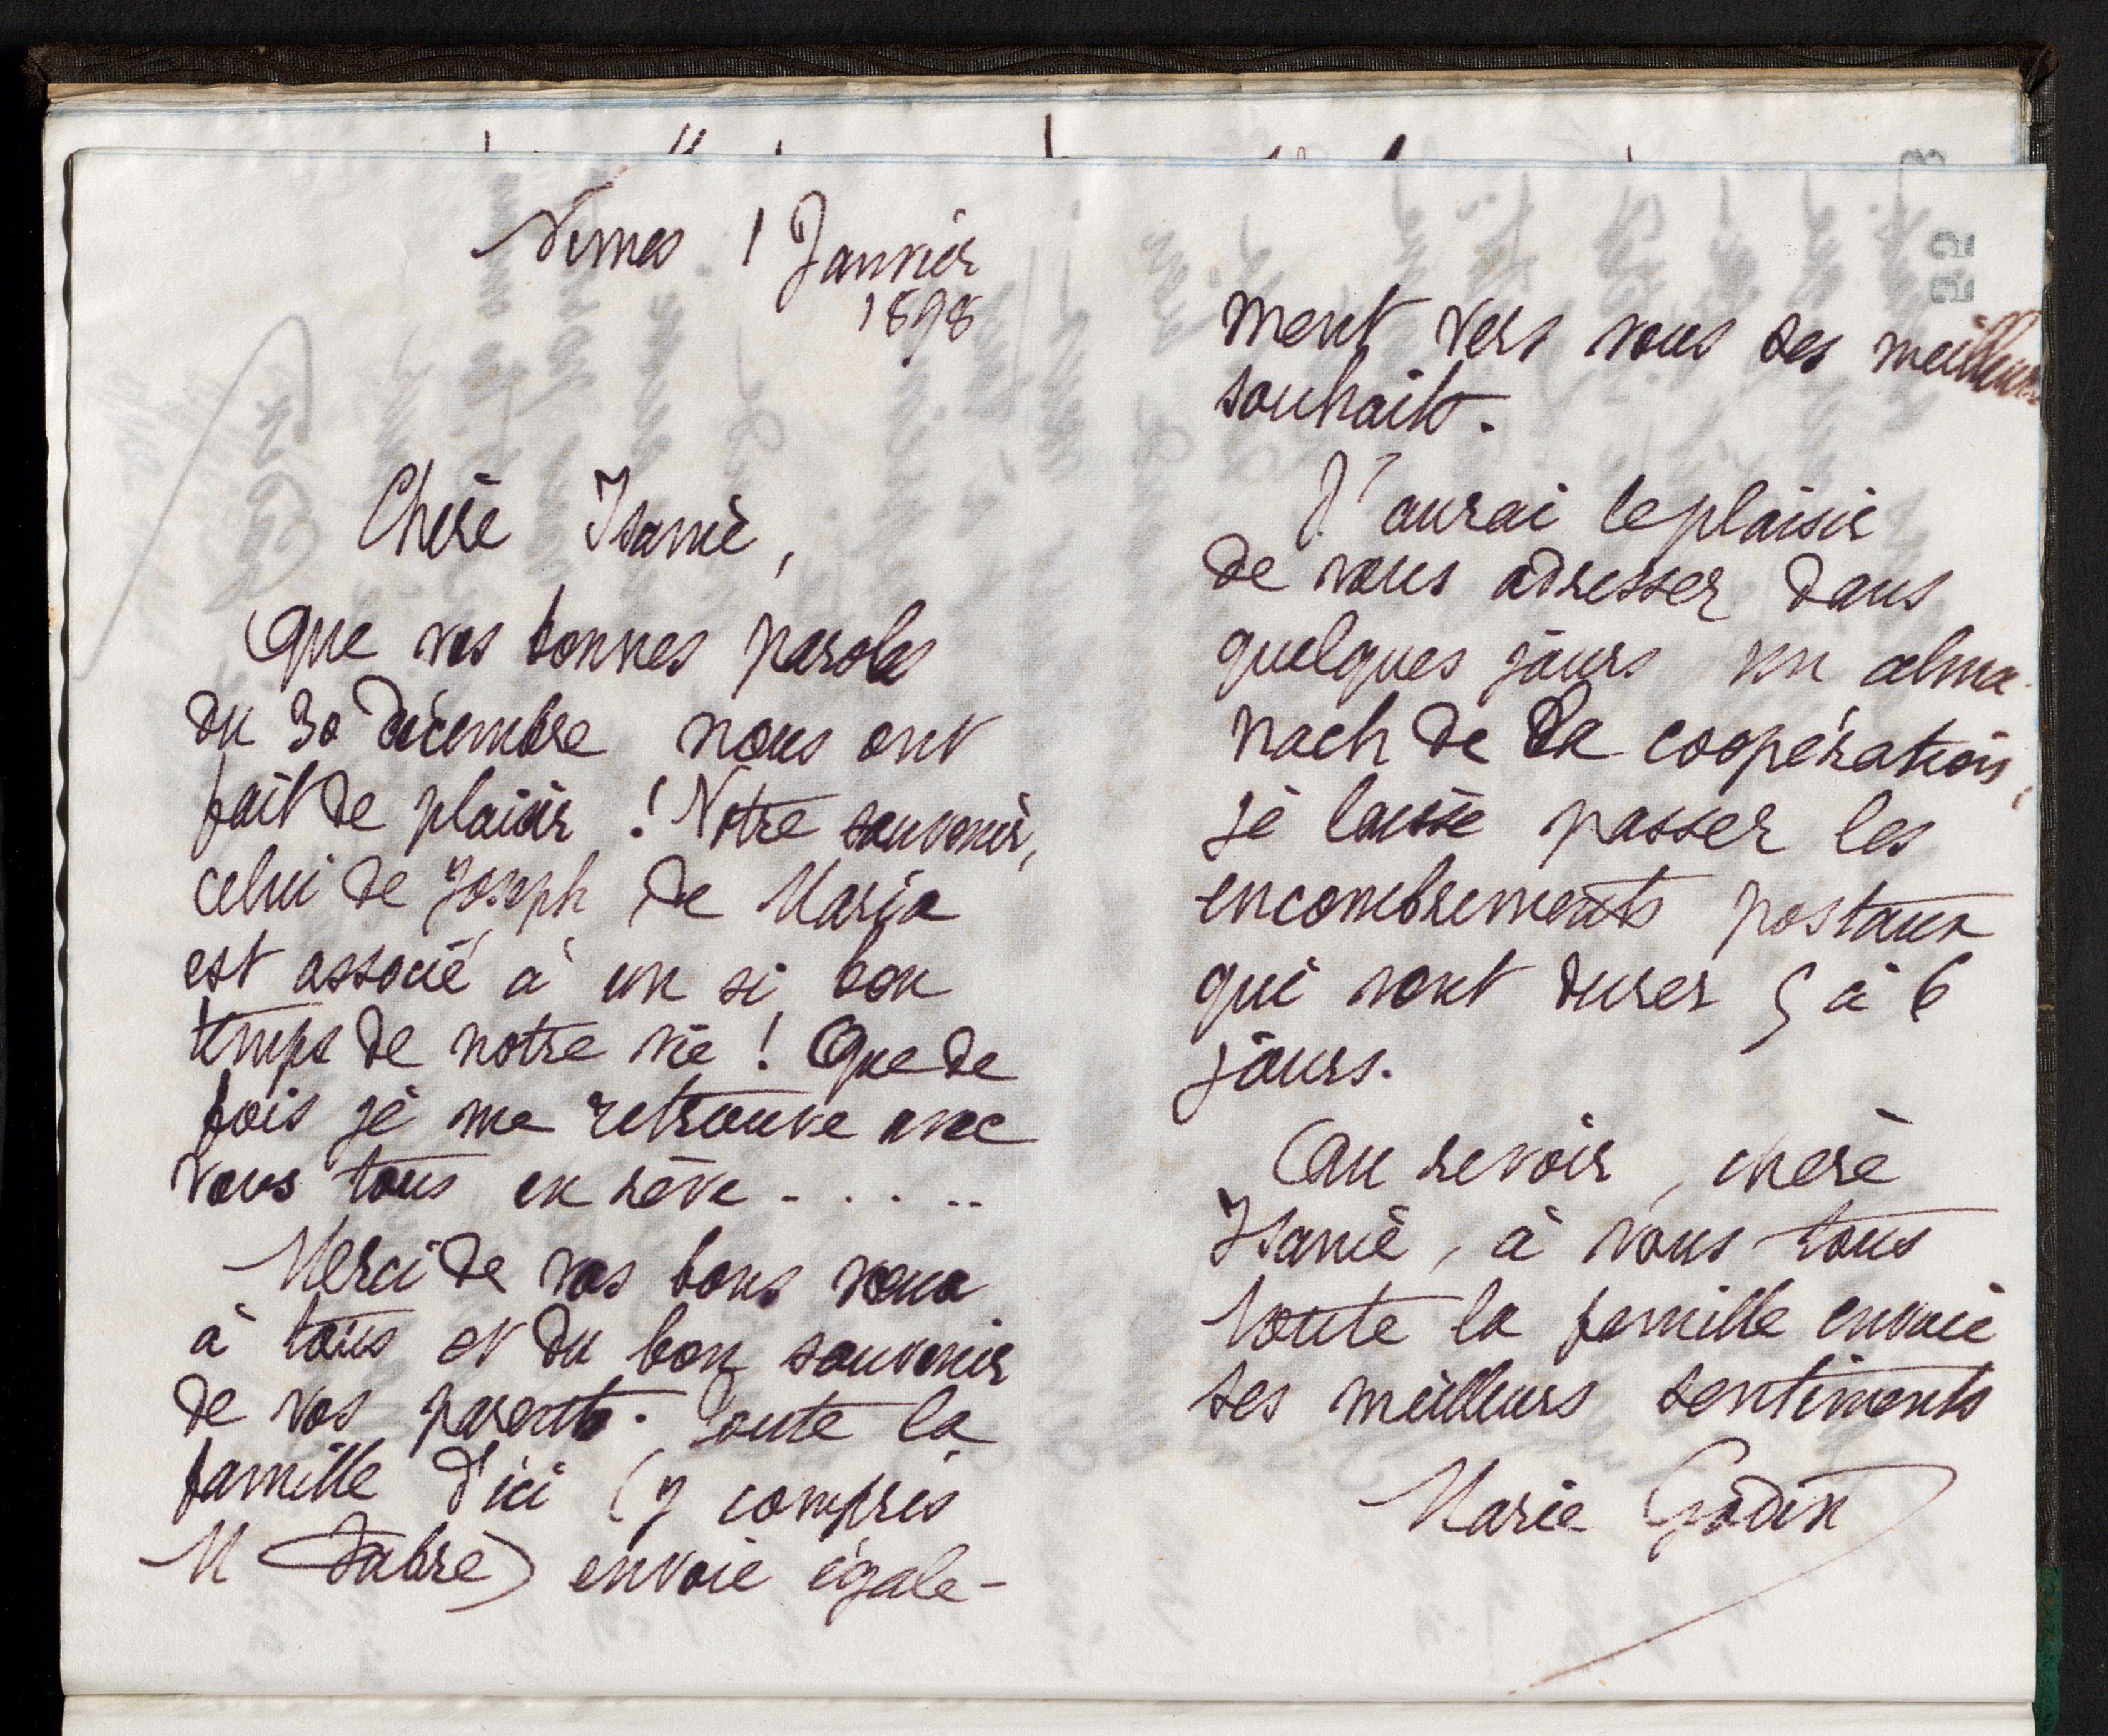 Nîmes 1 Janvier
1898
Chère Isanie,
Que vos bonnes paroles
du 30 décembre nous ont
fait de plaisir ! Votre souvenir,
celui de Joseph, de Maria
est associé à un si bon
temps de notre vie ! Que de
fois je me retrouve avec
vous tous en rêve.....
Merci de vos bons vœux
à tous et du bon souvenir
de vos parents. Toute la
famille d'ici (y compris
M Fabre) envoie égale-
ment vers vous ses meilleurs
souhaits.
J'aurai le plaisir
de vous adresser dans
quelques jours un alma-
nach de la coopération,
je laisse passer les
encombrements postaux
qui vont durer 5 à 6
jours.
Au revoir, chère
Isanie, à vous tous
toute la famille envoie
ses meilleurs sentiments
Marie Godin